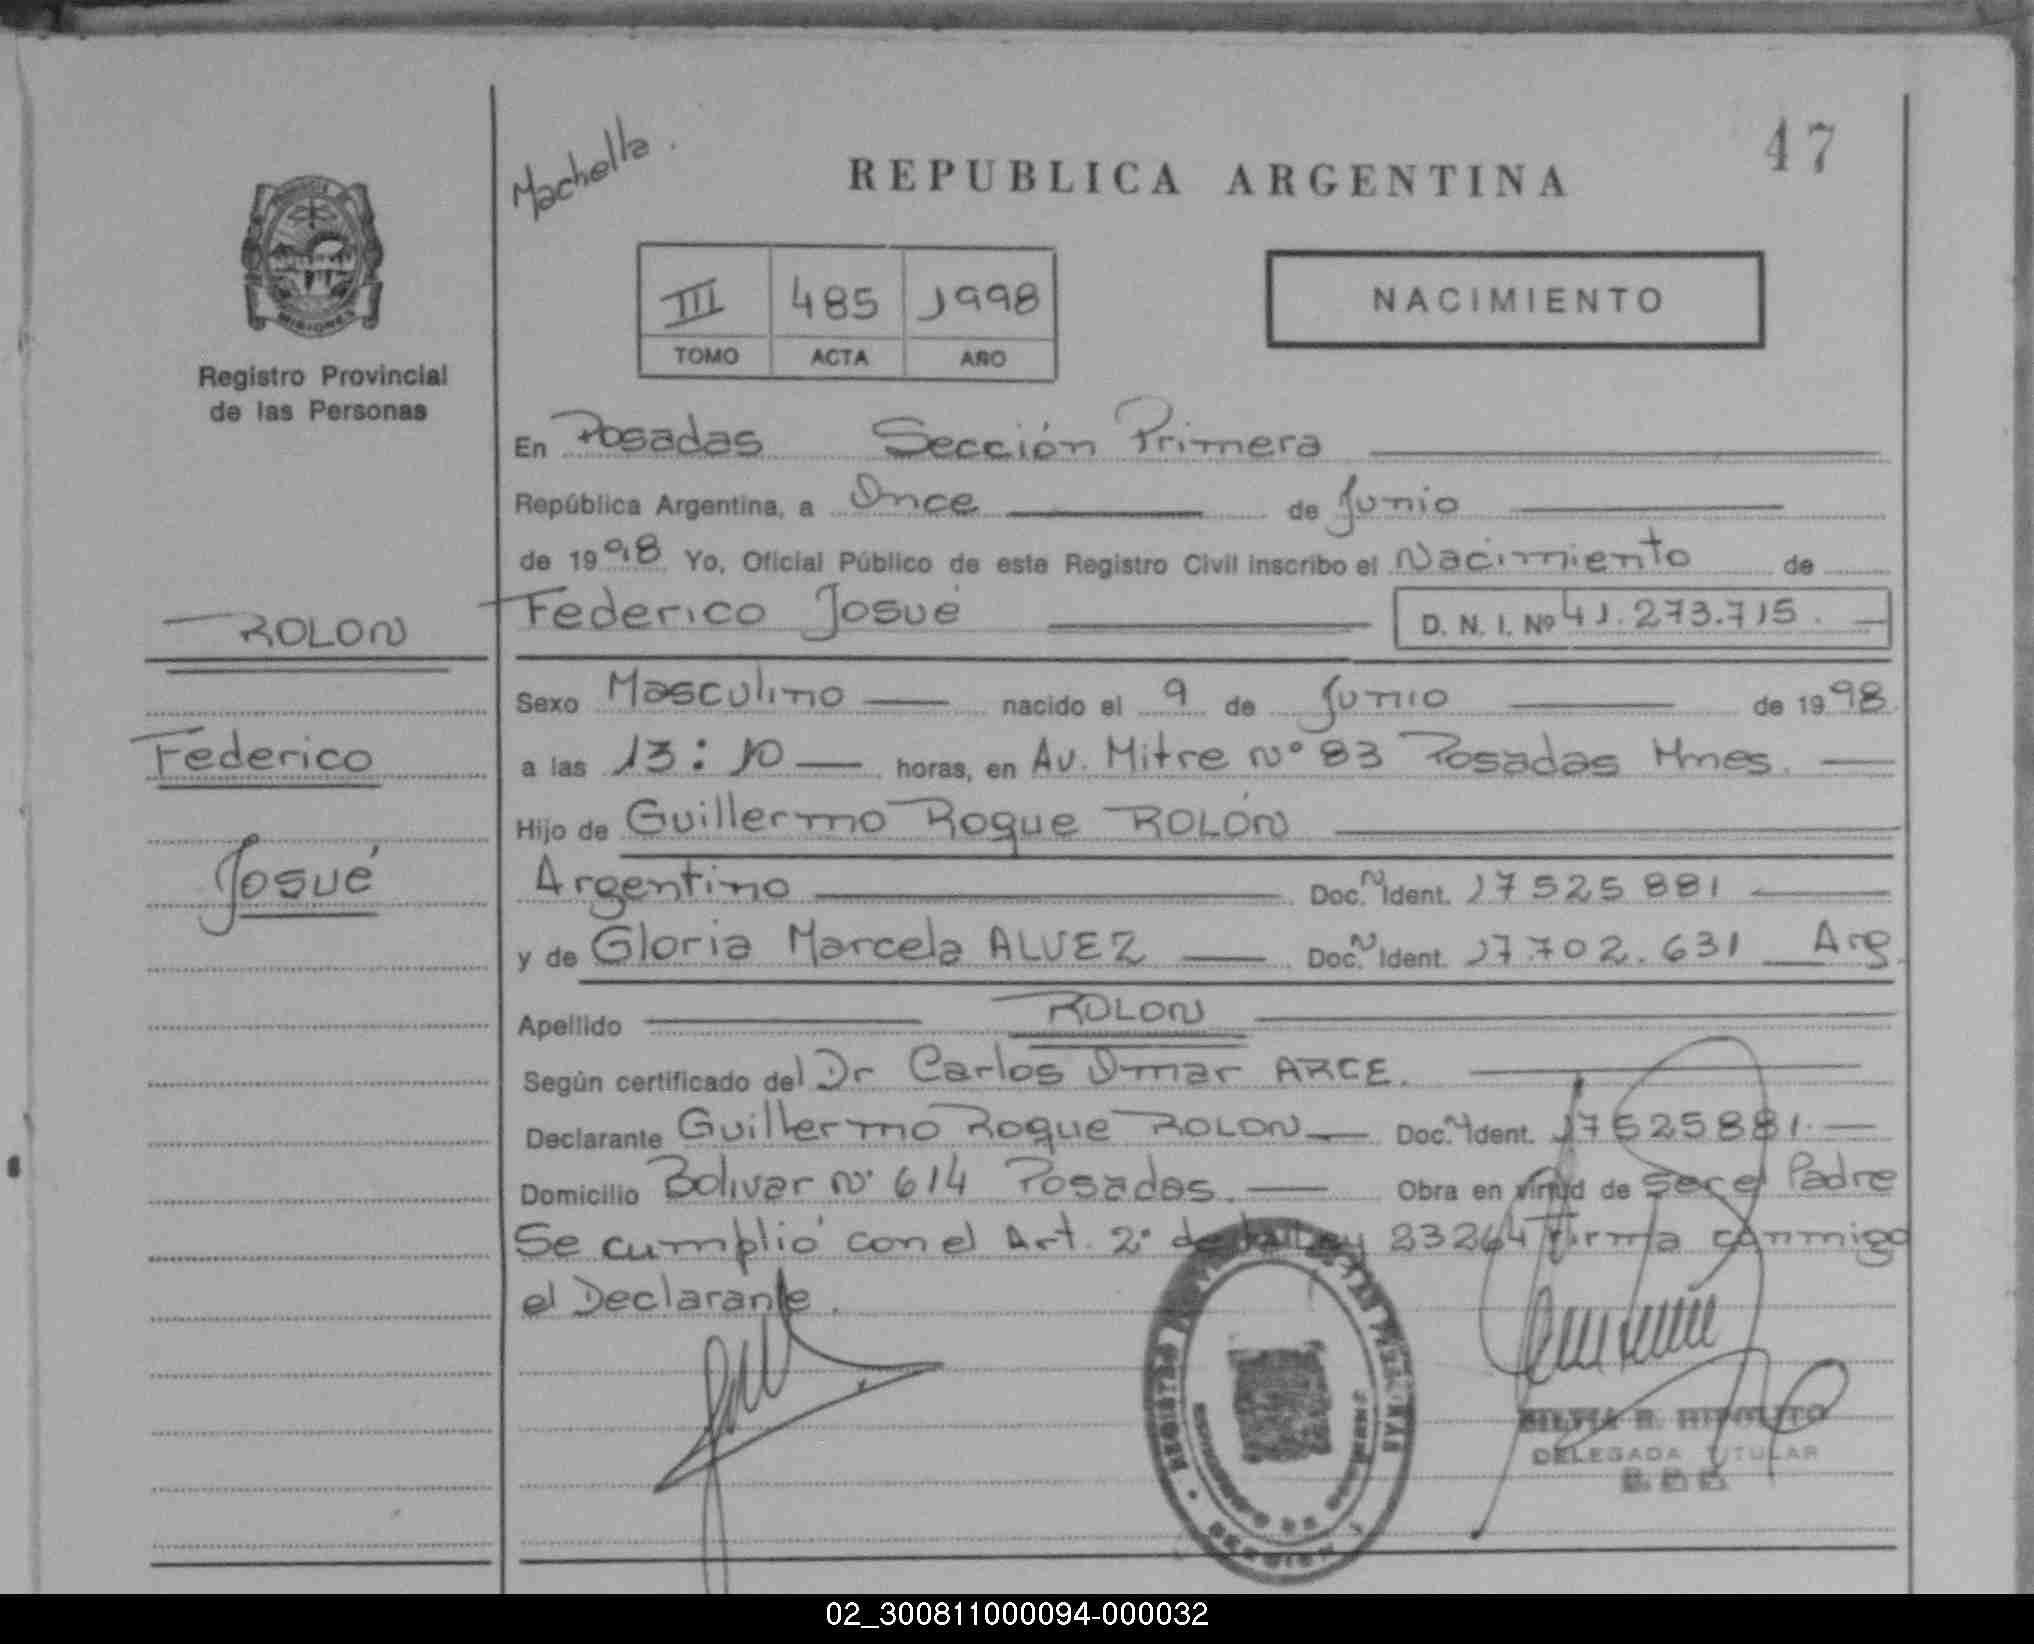 47
Machella.
REPUBLICA ARGENTINA
MISIONES
Registro Provincial
de las Personas
III 485 1998
TOMO ACTA AÑO
NACIMIENTO
En Posadas Sección Primera
República Argentina, a Once de Junio
de 1998 Yo, Oficial Público de este Registro Civil inscribo el Nacimiento de
ROLON
Federico Josué D. N. I. Nº 41.273.715.
Sexo Masculino nacido el 9 de Junio de 1998
Federico
a las 13:10 horas, en Av. Mitre Nº 83 Posadas Mnes.
Hijo de Guillermo Roque ROLÓN
Josué
Argentino Doc. N Ident. 17525881
y de Gloria Marcela ALVEZ Doc. N Ident. 17.702.631 Arg.
Apellido ROLON
Según certificado del Dr Carlos Omar ARCE.
Declarante Guillermo Roque ROLON Doc. N Ident. 17525881.
Domicilio Bolivar Nº 614 Posadas. Obra en virtud de ser el Padre
Se cumplió con el Art. 2º de la Ley 23264 Firma conmigo
el Declarante.
REGISTRO PROVINCIAL DE LAS PERSONAS
SILVIA R. HIPOLITO
DELEGADA TITULAR
02_300811000094-000032